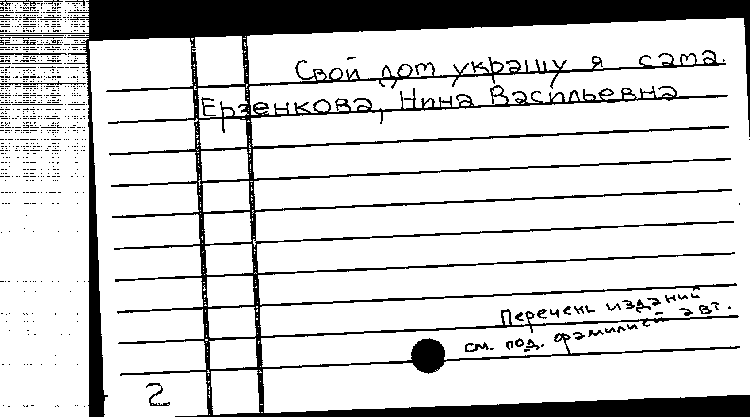 Свой дом украшу я сама.
Ерзенкова, Нина Васильевна
Перечень изданий
см. под. фамилией авт.
2